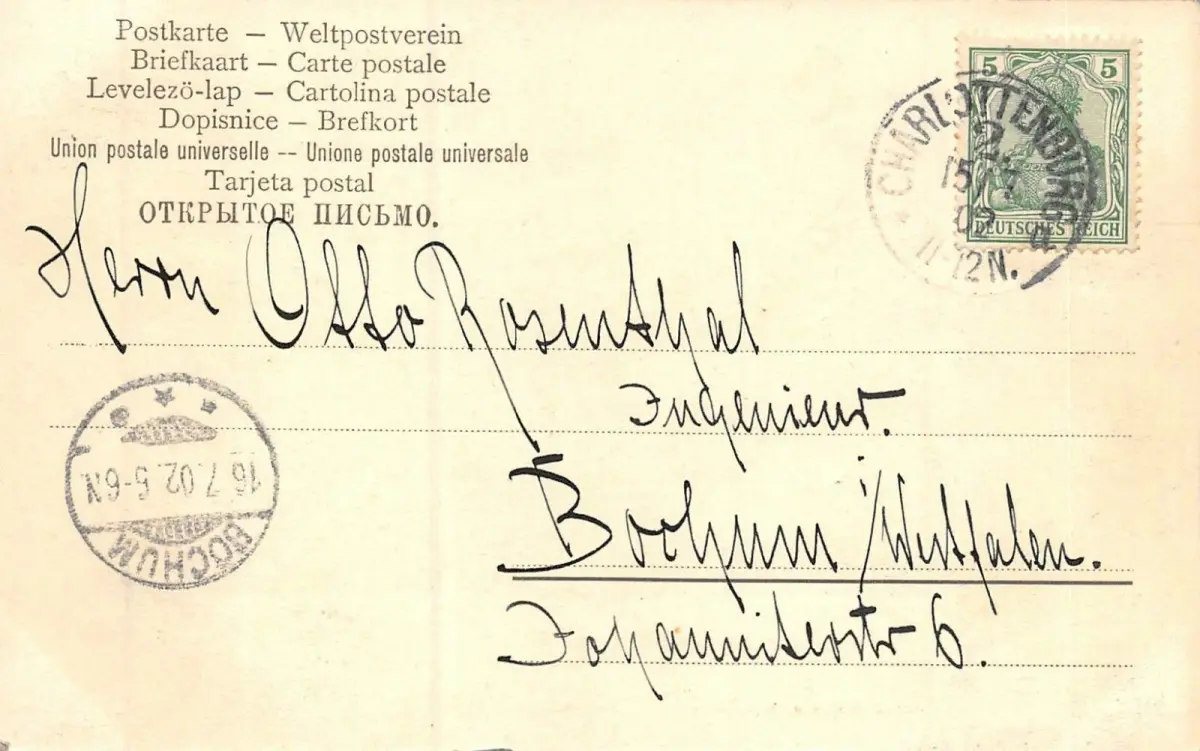 Postkarte — Weltpostverein
Briefkaart — Carte postale
Levelezö-lap — Cartolina postale
Dopisnice — Brefkort
Union postale universelle -- Unione postale universale
Tarjeta postal
ОТКРЫТОЕ ПИСЬМО.
5 5
DEUTSCHES REICH
CHARLOTTENBURG
2.
15.7.
02
11-12N.
Herrn Otto Rosenthal
Ingenieur.
Bochum i/Westfalen.
Johanniterstr 6.
16.7.02.5-6N
BOCHUM